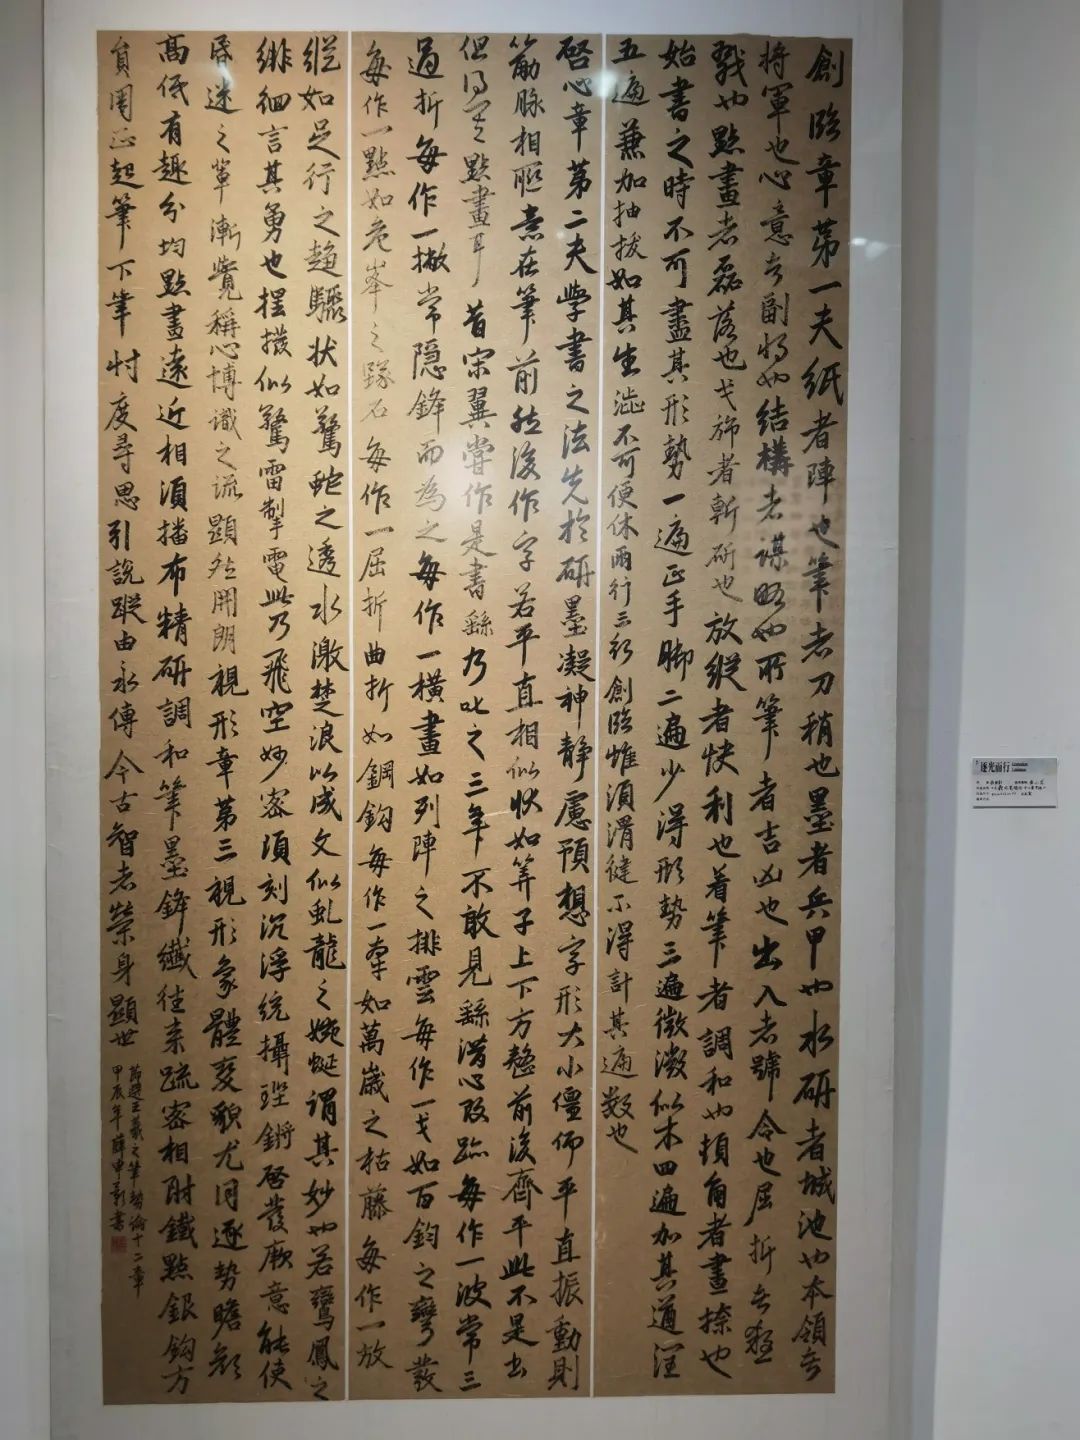 創臨章第一夫紙者陣也筆者刀稍也墨者兵甲也水研者城池也本領者
將軍也心意者副將也結構者謀略也所筆者吉凶也出入者號令也屈折者
戟也點畫者磊落也戈旆者斬斫也放縱者快利也着筆者調和也頓角者畫捺也
始書之時不可盡其形勢一遍正手脚二遍少得形勢三遍微微似本四遍加其遒潤
五遍兼加抽拔如其生澁不可便休兩行三行創臨惟須滑健不得計其遍數也
啓心章第二夫學書之法先於研墨凝神靜慮預想字形大小偃仰平直振動則
筋脉相聯意在筆前然後作字若平直相似狀如算子上下方整前後齊平此不是書
但得其點畫耳昔宋翼嘗作是書繇乃叱之三年不敢見繇潛心改跡每作一波常三
過折每作一撇常隱鋒而為之每作一橫畫如列陣之排雲每作一戈如百鈞之彎發
每作一點如危峯之墜石每作一屈折曲折如鋼鈎每作一牽如萬歲之枯藤每作一放
縱如足行之趨驟狀如驚蛇之透水激楚浪以成文似虬龍之婉蜒謂其妙也若鸞鳳之
徘徊言其勇也擺撥似驚雷掣電此乃飛空妙密須刻沉浮統攝鏗鏘啓發厥意能使
昏迷之輩漸覺稱心博識之流顯然開朗視形章第三視形象體變貌尤同逐勢瞻顏
高低有趣分均點畫遠近相須播布精研調和筆墨鋒纖往來疏密相附鐵點銀鈎方
員周正起筆下筆忖度尋思引說蹤由永傳今古智者榮身顯世
節選王羲之筆勢論十二章
甲辰年薛申彰書
逐光而行